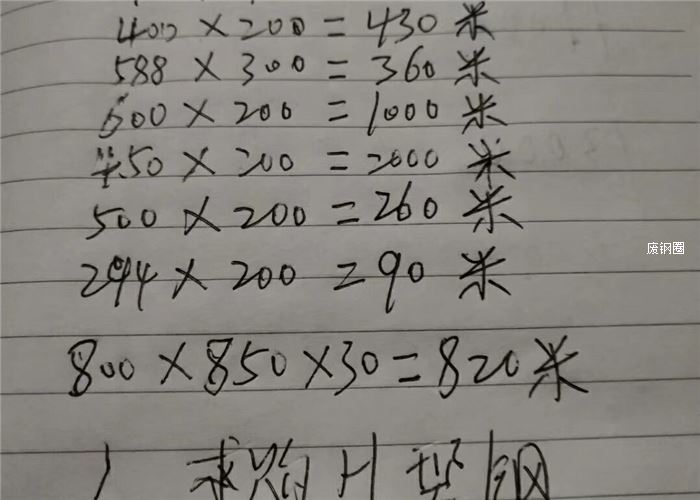 400 × 200 = 430 米
588 × 300 = 360 米
600 × 200 = 1000 米
450 × 200 = 2000 米
500 × 200 = 260 米
废钢圈
294 × 200 = 90 米
800 × 850 × 30 = 820 米
求购 H 型钢